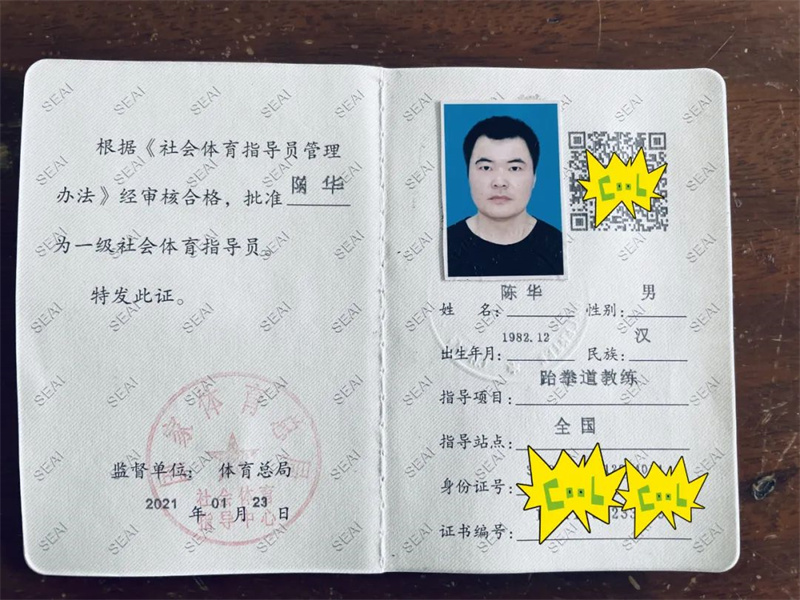 根据《社会体育指导员管理
办法》经审核合格，批准 陈 华
为一级社会体育指导员。
特发此证。
国家体育总局
社会体育
指导中心
监督单位： 体育总局
2021 年 01 月 23 日
COOL
姓 名： 陈 华 性别： 男
出生年月： 1982.12 民族： 汉
指导项目： 跆拳道教练
指导站点： 全 国
身份证号：
证书编号：
SEAI